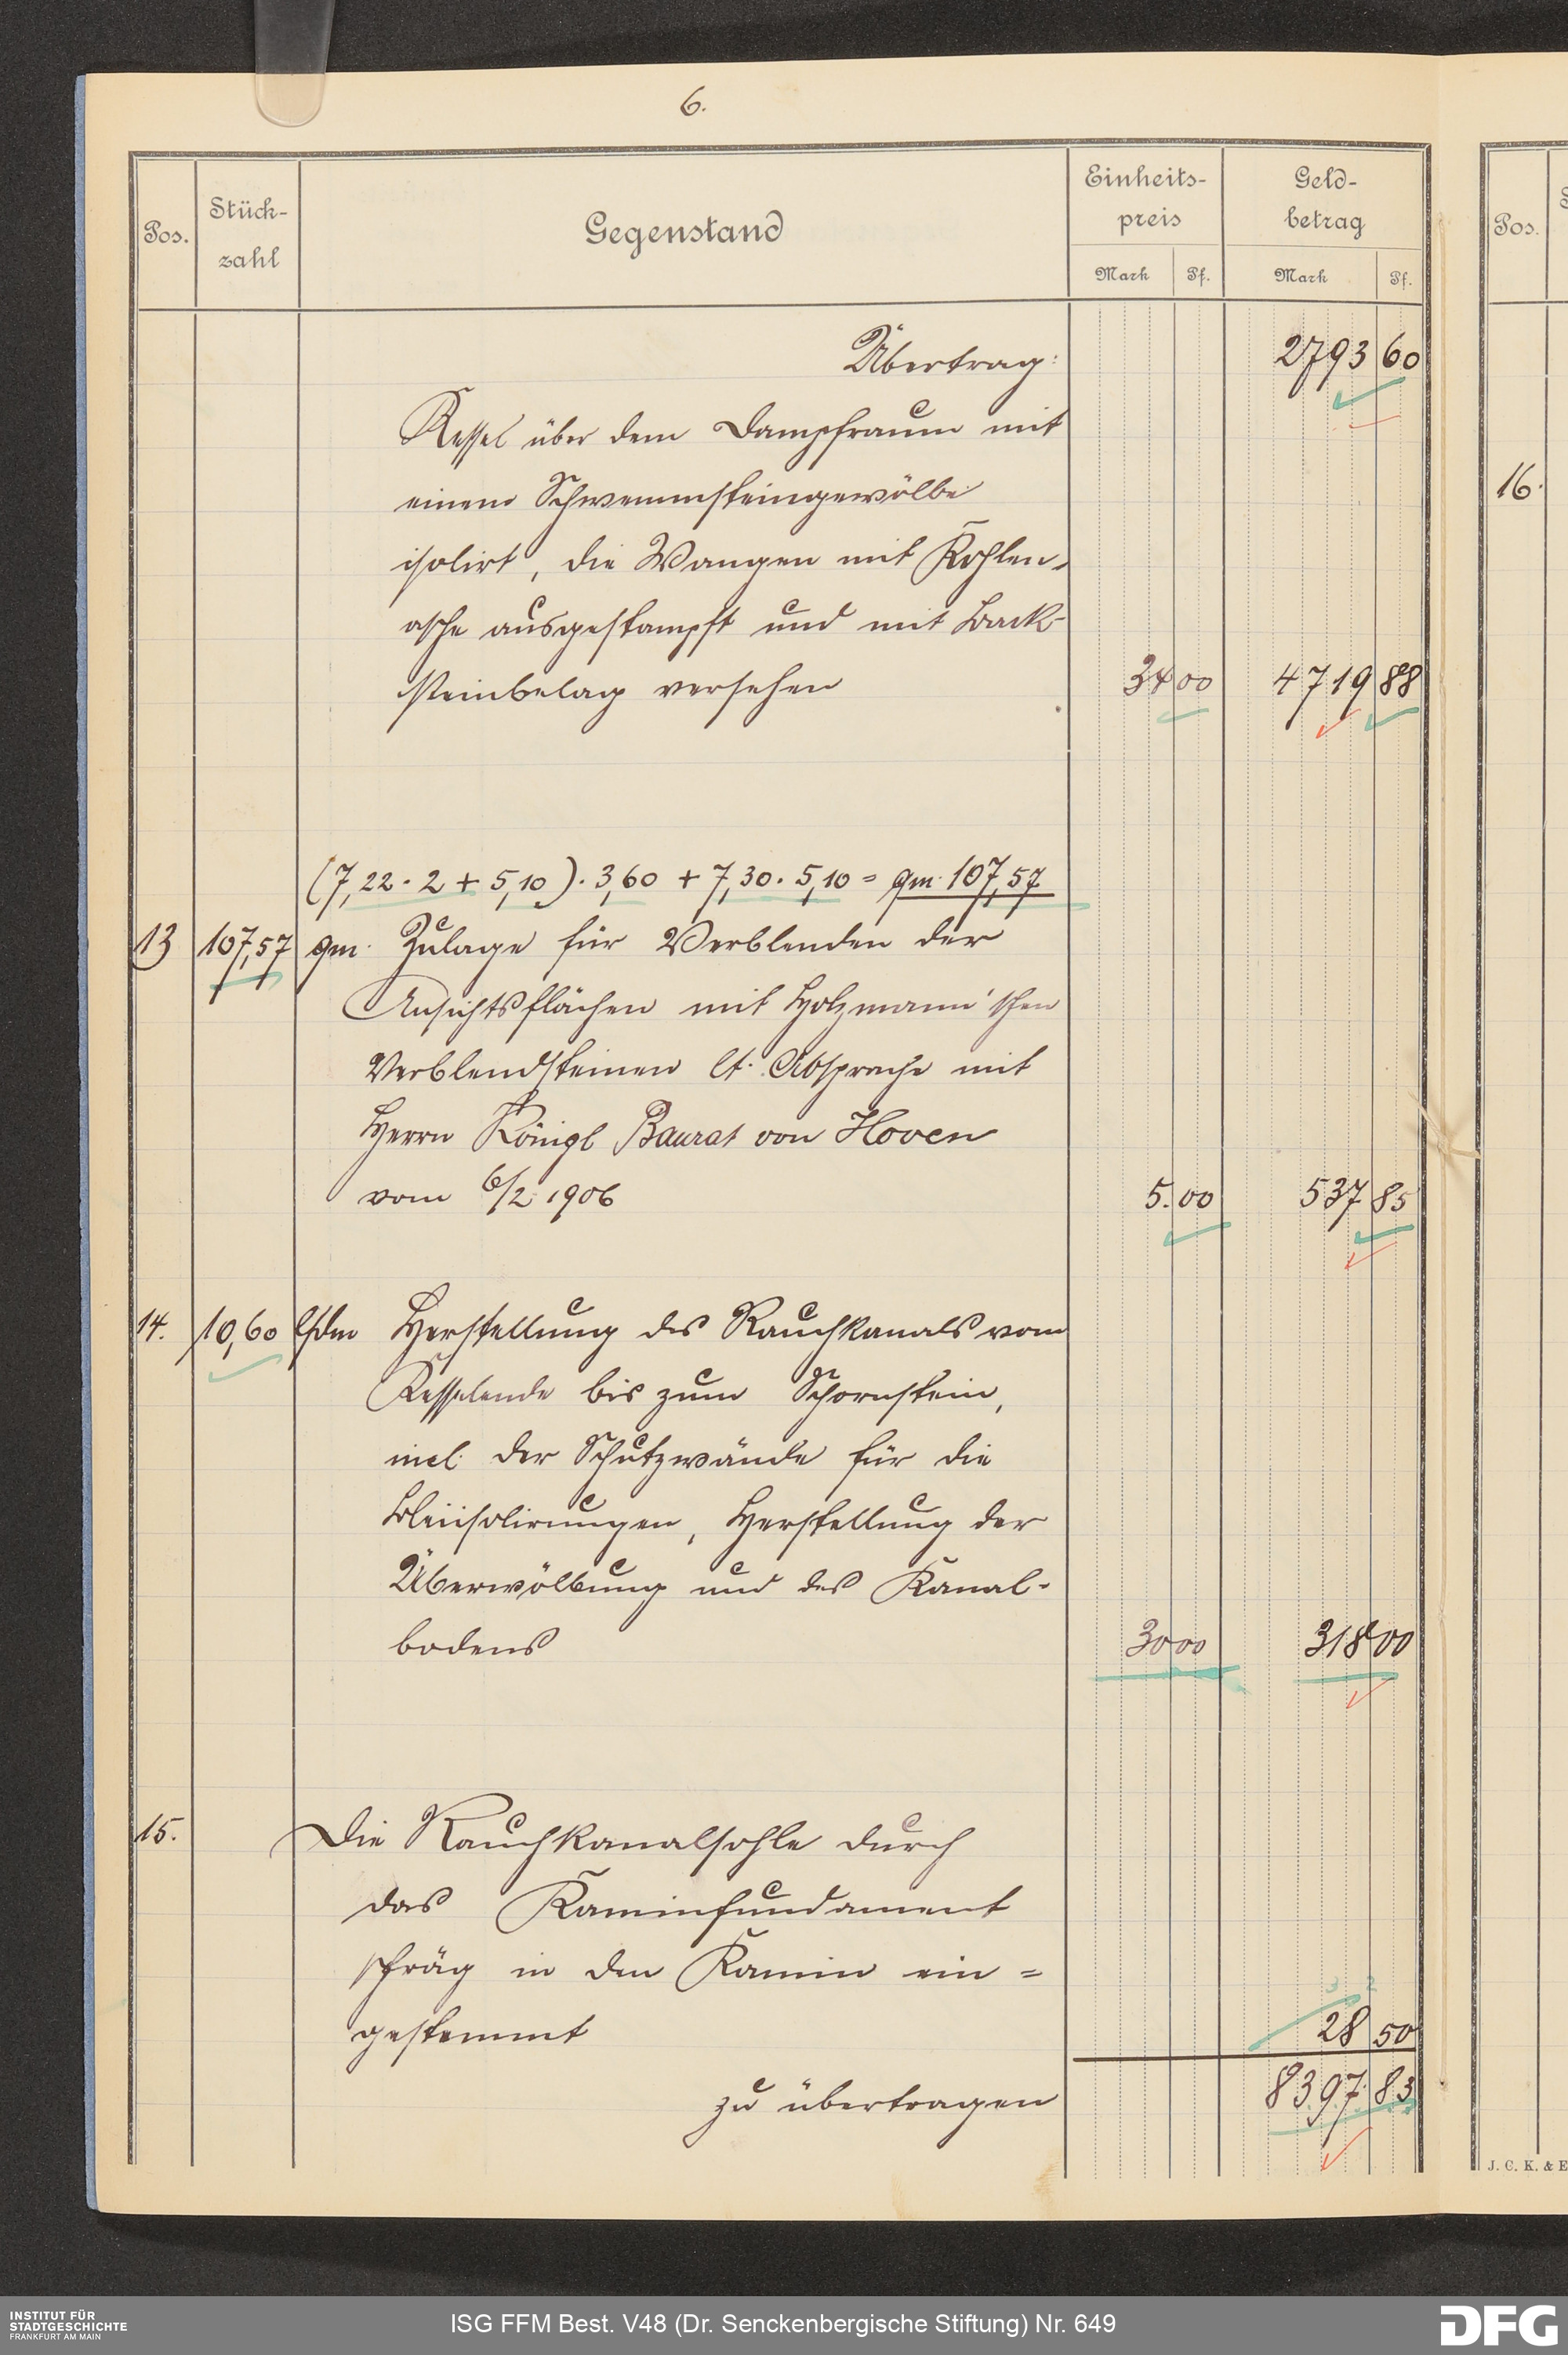 6.
Pos.
Stück-
zahl
Gegenstand
Einheits-
preis
Geld-
betrag
Mark Pf. Mark Pf.
Pos.
Übertrag: 2793 60
Kessel über dem Dampfraum mit
einem Schwemmsteingewölbe
isolirt, die Wangen mit Kohlen-
asche ausgestampft und mit Back-
steinbelag versehen 34 00 4719 88
16.
(7,22 · 2 + 5,10) · 3,60 + 7,30 · 5,10 = qm 107,57
13 107,57 qm. Zulage für Verblenden der
Ansichtsflächen mit Holzmann'schen
Verblendsteinen lt. Absprache mit
Herrn Königl Baurat von Hoven
vom 6/2 1906 5. 00 537 85
14. 10,60 lfdm Herstellung des Rauchkanals vom
Kesselende bis zum Schornstein,
incl. der Schutzwände für die
Bleiisolirungen, Herstellung der
Überwölbung und des Kanal-
bodens 30 00 318 00
15. Die Rauchkanalsohle durch
das Kaminfundament
schräg in den Kamin ein=
gestemmt 28 50
zu übertragen 8397 83
J. C. K. & E
INSTITUT FÜR
STADTGESCHICHTE
FRANKFURT AM MAIN
ISG FFM Best. V48 (Dr. Senckenbergische Stiftung) Nr. 649
DFG